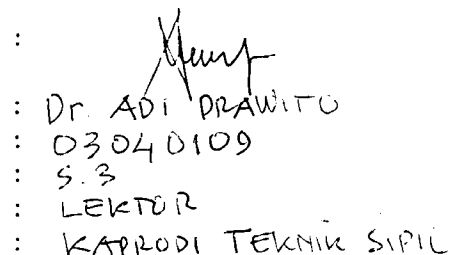 :
: Dr. ADI PRAWITO
: 03040109
: S.3
: LEKTOR
: KAPRODI TEKNIK SIPIL